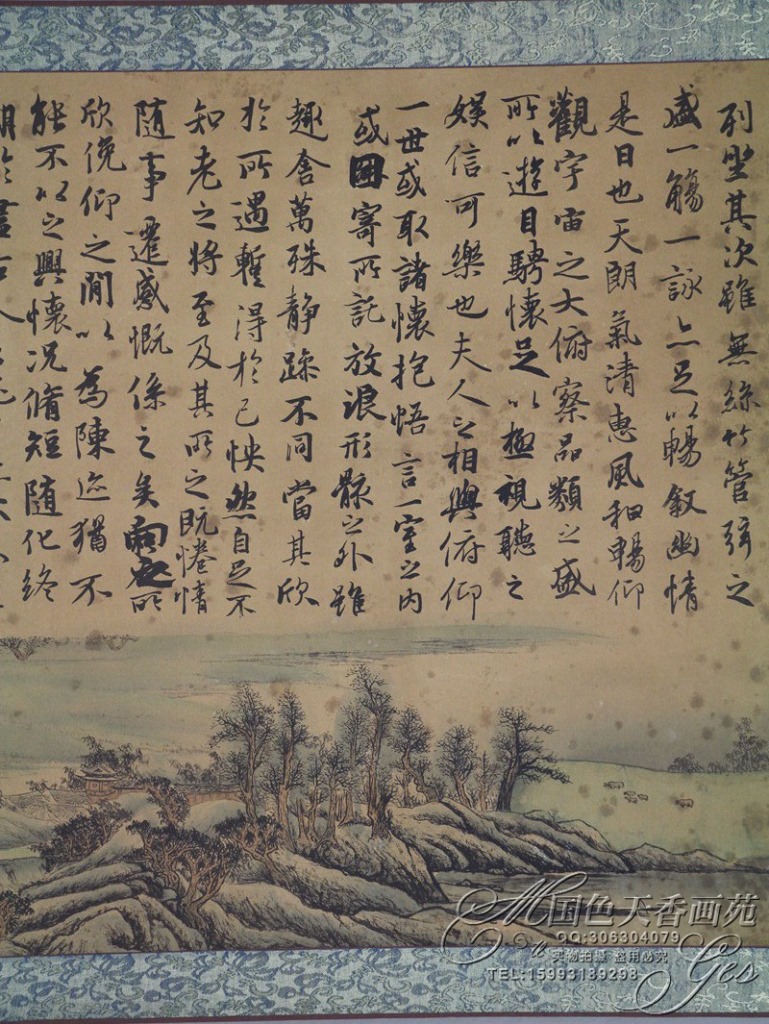 列坐其次雖無絲竹管弦之
盛一觴一詠亦足以暢叙幽情
是日也天朗氣清惠風和暢仰
觀宇宙之大俯察品類之盛
所以遊目騁懷足以極視聽之
娛信可樂也夫人之相與俯仰
一世或取諸懷抱悟言一室之內
或因寄所託放浪形骸之外雖
趣舍萬殊静躁不同當其欣
於所遇暫得於己怏然自足不
知老之將至及其所之既惓情
隨事遷感慨係之矣向之所
欣俛仰之閒以為陳迹猶不
能不以之興懷况脩短隨化終
國色天香画苑
QQ:306304079
实物拍摄 盗用必究
TEL:15993189298